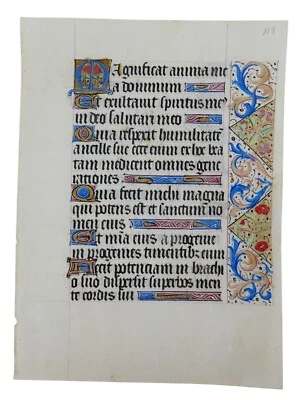 Magnificat anima me
a dominum
Et exultavit spiritus me
in deo salutari meo
Quia respexit humilitatē
ancille sue ecce enim ex hoc bea
tam me dicent omnes gene
rationes
Quia fecit michi magna
qui potens est et sanctum no
men eius
Et mīa eius a progenie
in progenies timentibus eum
Fecit potenciam in brachi
o suo dispersit superbos men
te cordis sui